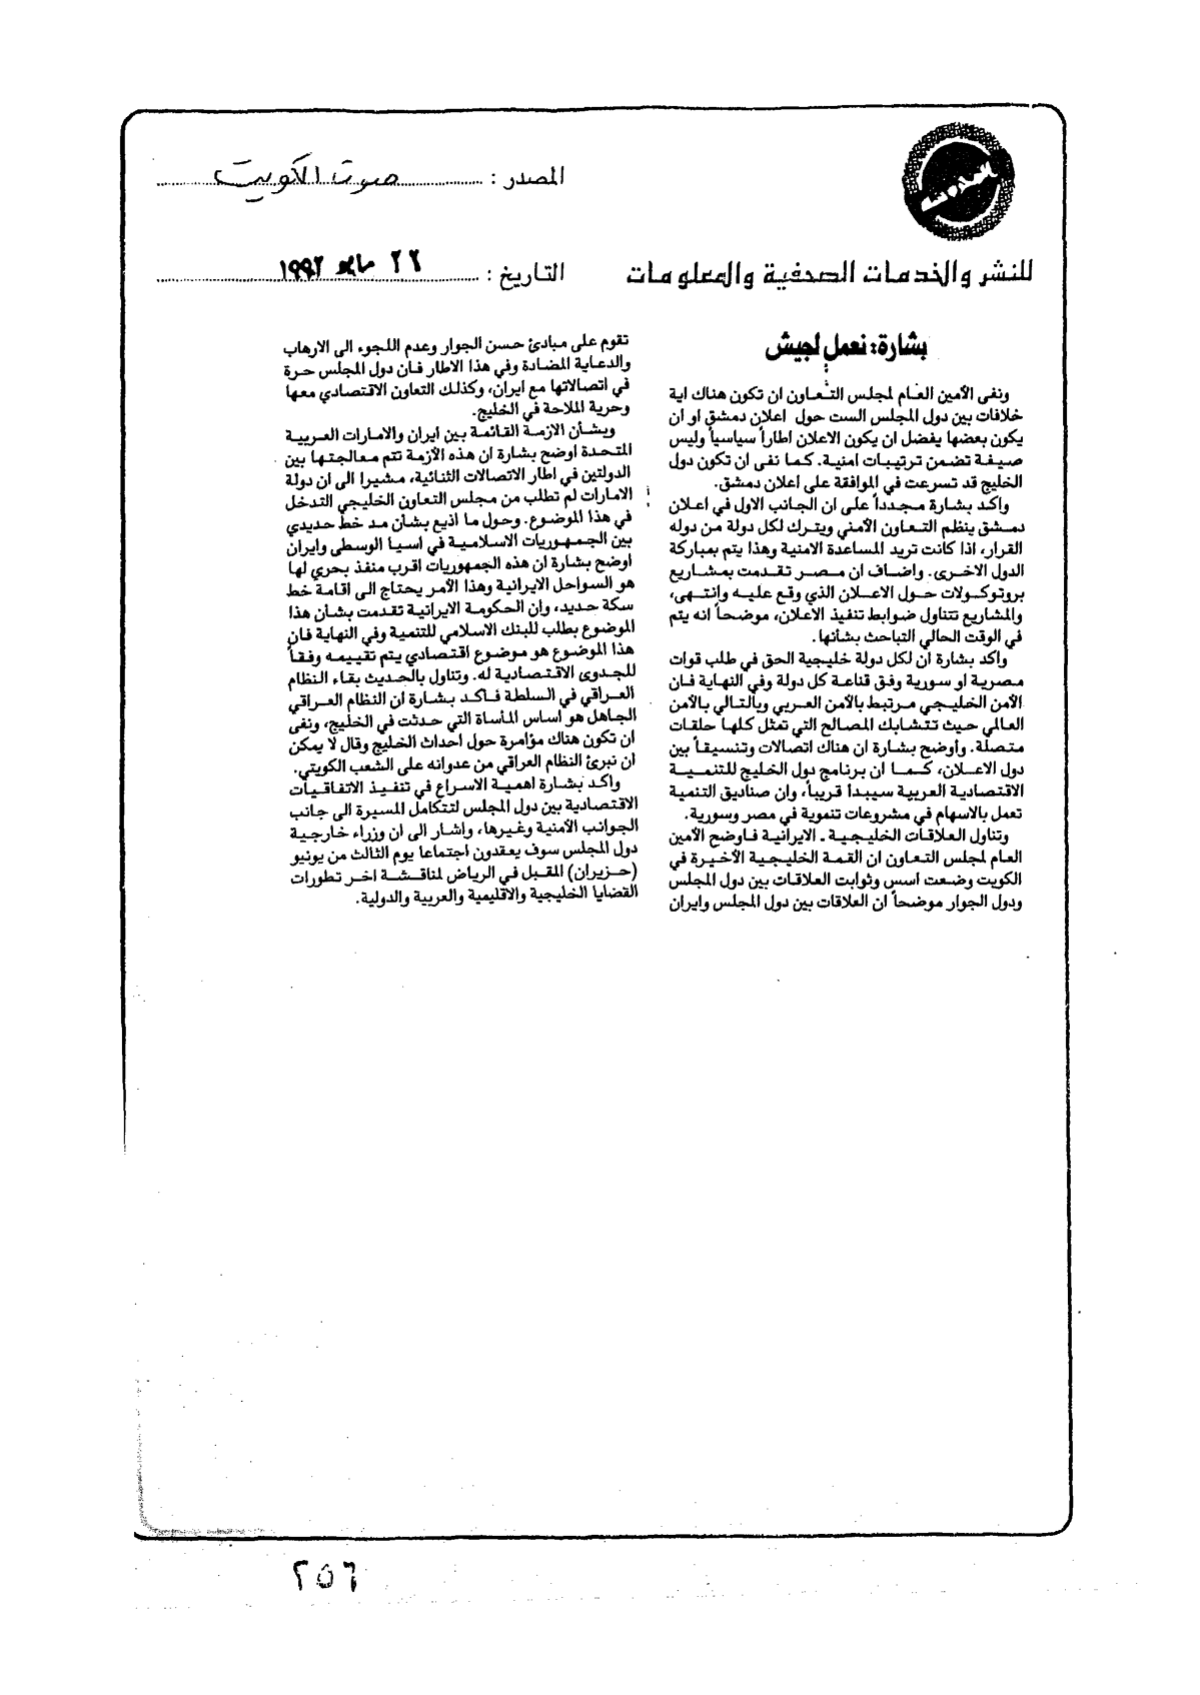 المصدر : صوت الكويت
للنشر والخدمات الصحفية والمعلومات
التاريخ : ٢٢ مايو ١٩٩٢
بشارة: نعمل لجيش
ونفى الأمين العام لمجلس التعاون ان تكون هناك اية
خلافات بين دول المجلس الست حول اعلان دمشق او ان
يكون بعضها يفضل ان يكون الاعلان اطاراً سياسياً وليس
صيغة تضمن ترتيبات امنية. كما نفى ان تكون دول
الخليج قد تسرعت في الموافقة على اعلان دمشق.
واكد بشارة مجدداً على ان الجانب الاول في اعلان
دمشق ينظم التعاون الأمني ويترك لكل دولة من دوله
القرار، اذا كانت تريد المساعدة الامنية وهذا يتم بمباركة
الدول الاخرى. واضاف ان مصر تقدمت بمشاريع
بروتوكولات حول الاعلان الذي وقع عليه وانتهى،
والمشاريع تتناول ضوابط تنفيذ الاعلان، موضحاً انه يتم
في الوقت الحالي التباحث بشأنها.
واكد بشارة ان لكل دولة خليجية الحق في طلب قوات
مصرية او سورية وفق قناعة كل دولة وفي النهاية فان
الأمن الخليجي مرتبط بالأمن العربي وبالتالي بالأمن
العالمي حيث تتشابك المصالح التي تمثل كلها حلقات
متصلة. وأوضح بشارة ان هناك اتصالات وتنسيقاً بين
دول الاعلان، كما ان برنامج دول الخليج للتنمية
الاقتصادية العربية سيبدأ قريباً، وان صناديق التنمية
تعمل بالاسهام في مشروعات تنموية في مصر وسورية.
وتناول العلاقات الخليجية ـ الايرانية فاوضح الأمين
العام لمجلس التعاون ان القمة الخليجية الأخيرة في
الكويت وضعت اسس وثوابت العلاقات بين دول المجلس
ودول الجوار موضحاً ان العلاقات بين دول المجلس وايران
تقوم على مبادئ حسن الجوار وعدم اللجوء الى الارهاب
والدعاية المضادة وفي هذا الاطار فان دول المجلس حرة
في اتصالاتها مع ايران، وكذلك التعاون الاقتصادي معها
وحرية الملاحة في الخليج.
وبشأن الازمة القائمة بين ايران والامارات العربية
المتحدة اوضح بشارة ان هذه الأزمة تتم معالجتها بين
الدولتين في اطار الاتصالات الثنائية، مشيرا الى ان دولة
الامارات لم تطلب من مجلس التعاون الخليجي التدخل
في هذا الموضوع. وحول ما اذيع بشأن مد خط حديدي
بين الجمهوريات الاسلامية في اسيا الوسطى وايران
اوضح بشارة ان هذه الجمهوريات اقرب منفذ بحري لها
هو السواحل الايرانية وهذا الأمر يحتاج الى اقامة خط
سكة حديد، وان الحكومة الايرانية تقدمت بشأن هذا
الموضوع بطلب للبنك الاسلامي للتنمية وفي النهاية فان
هذا الموضوع هو موضوع اقتصادي يتم تقييمه وفقاً
للجدوى الاقتصادية له. وتناول بالحديث بقاء النظام
العراقي في السلطة فاكد بشارة ان النظام العراقي
الجاهل هو اساس المأساة التي حدثت في الخليج، ونفى
ان تكون هناك مؤامرة حول احداث الخليج وقال لا يمكن
ان نبرئ النظام العراقي من عدوانه على الشعب الكويتي.
واكد بشارة اهمية الاسراع في تنفيذ الاتفاقيات
الاقتصادية بين دول المجلس لتتكامل المسيرة الى جانب
الجوانب الأمنية وغيرها، واشار الى ان وزراء خارجية
دول المجلس سوف يعقدون اجتماعا يوم الثالث من يونيو
(حزيران) المقبل في الرياض لمناقشة اخر تطورات
القضايا الخليجية والاقليمية والعربية والدولية.
٢٥٦